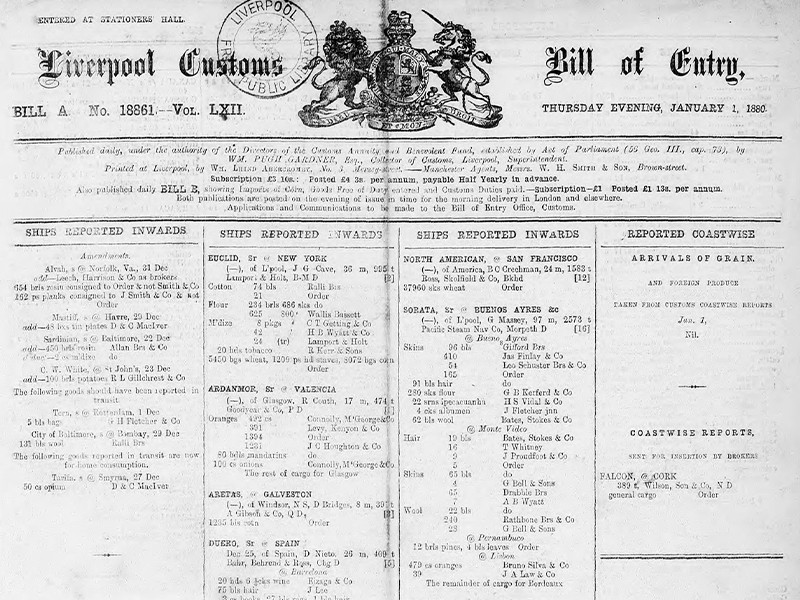 ENTERED AT STATIONERS HALL.
LIVERPOOL
FREE PUBLIC LIBRARY
Liverpool Customs Bill of Entry,
BILL A. No. 18861.—VOL. LXII. THURSDAY EVENING, JANUARY 1, 1880
Published daily, under the authority of the Directors of the Customs Annuity and Benevolent Fund, established by Act of Parliament (56 Geo. III., cap. 73), by
WM. PUGH GARDNER, Esq., Collector of Customs, Liverpool, Superintendent.
Printed at Liverpool, by WM. Abercromby, No. Mersey-street.—Manchester Agents, Messrs. W. H. SMITH & SON, Brown-street.
Subscription £3 10s.: Posted £4 3s. per annum, payable Half Yearly in advance.
Also published daily BILL B, showing Imports of Corn, Goods Free of Duty entered and Customs Duties paid.—Subscription—£1 Posted £1 13s. per annum.
Both publications are posted on the evening of issue in time for the morning delivery in London and elsewhere.
Applications and Communications to be made to the Bill of Entry Office, Customs.
SHIPS REPORTED INWARDS
Amendments.
Alvah, s @ Norfolk, Va., 31 Dec
add—Leech, Harrison & Co as brokers
654 brls rosin consigned to Order & not Smith & Co
162 ps planks consigned to J Smith & Co & not
Order
Mastiff, s @ Havre, 29 Dec
add—48 bxs tin plates D & C MacIver
Sardinian, s @ Baltimore, 22 Dec
add—450 brls rosin Allan Brs & Co
m'dize do
C. W. White, @ St John's, 23 Dec
add—100 brls potatoes R L Gillchrest & Co
The following goods should have been reported in
transit.
Tern, s @ Rotterdam, 1 Dec
5 bls bags G H Fletcher & Co
City of Baltimore, s @ Bombay, 29 Dec
131 bls wool Ralli Brs
The following goods reported in transit are now
for home consumption.
Tarifa, s @ Smyrna, 27 Dec
50 cs opium D & C MacIver
SHIPS REPORTED INWARDS
EUCLID, Sr @ NEW YORK
(—), of L'pool, J G Cave, 36 m, 995 t
Lamport & Holt, B-M D
Cotton 74 bls Ralli Brs
21 Order
Flour 234 brls 686 sks do
625 800 Wallis Bassett
M'dize 8 pkgs C T Getting & Co
42 H B Wyatt & Co
24 (tr) Lamport & Holt
20 hds tobacco R Kerr & Sons
5450 bgs wheat, 1200 ps hd staves, 8072 bgs corn
Order
ARDANMOR, Sr @ VALENCIA
(—), of Glasgow, R Couth, 17 m, 474 t
Goodyear & Co, P D
Oranges 492 cs Connolly, McGeorge & Co
391 Levy, Kenyon & Co
1394 Order
1231 J C Houghton & Co
80 hds mandarins do
100 cs onions Connolly, McGeorge & Co
The rest of cargo for Glasgow
ARETAS, @ GALVESTON
(—), of Windsor, N S, D Bridges, 8 m, 397 t
A Gibson & Co, Q D
1235 bls cotn Order
DUERO, Sr @ SPAIN
Dec 25, of Spain, D Nieto. 26 m, 409 t
Bahr, Behrend & Ross, Chg D [5]
@ Barcelona
20 hds 6 cks wine Eizaga & Co
75 bls hair J Lee
SHIPS REPORTED INWARDS
NORTH AMERICAN, @ SAN FRANCISCO
(—), of America, B C Creehman, 24 m, 1583 t
Ross, Skolfield & Co, Bkhd [12]
37960 sks wheat Order
SORATA, Sr @ BUENOS AYRES &c
(—), of L'pool, G Massey, 97 m, 2573 t
Pacific Steam Nav Co, Morpeth D [16]
@ Buenos Ayres
Skins 96 bls Gifford Brs
410 Jas Finlay & Co
54 Leo Schuster Brs & Co
165 Order
91 bls hair do
280 sks flour G B Kerferd & Co
22 srns ipecacuanha H S Vidal & Co
4 cks albumen J Fletcher jnn
62 bls wool Bates, Stokes & Co
@ Monte Video
Hair 19 bls Bates, Stokes & Co
16 T Whitney
9 J Proudfoot & Co
5 Order
Skins 65 bls do
4 G Bell & Sons
65 Drabble Brs
7 A B Wyatt
Wool 22 bls do
240 Rathbone Brs & Co
28 G Bell & Sons
@ Pernambuco
12 brls pines, 4 bls leaves Order
@ Lisbon
479 cs oranges Bruno Silva & Co
39 J A Law & Co
The remainder of cargo for Bordeaux
REPORTED COASTWISE
ARRIVALS OF GRAIN,
AND FOREIGN PRODUCE
TAKEN FROM CUSTOMS COASTWISE REPORTS
Jan. 1,
Nil.
COASTWISE REPORTS,
SENT FOR INSERTION BY BROKERS
FALCON, @ CORK
389 t, Wilson, Son & Co, N D
general cargo Order